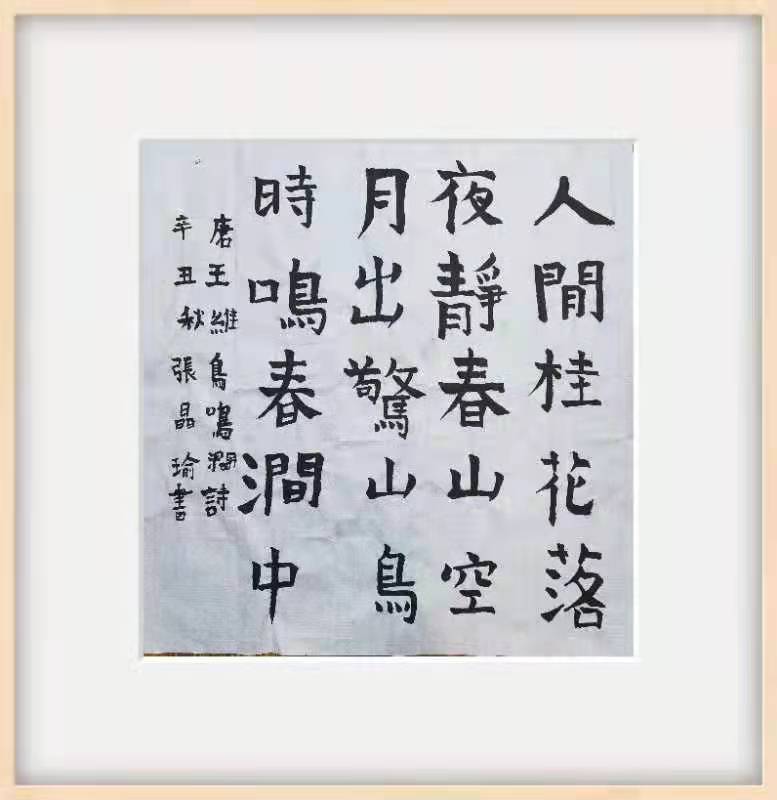 人閒桂花落
夜靜春山空
月出驚山鳥
時鳴春澗中
唐王維鳥鳴澗詩
辛丑秋張晶瑜書